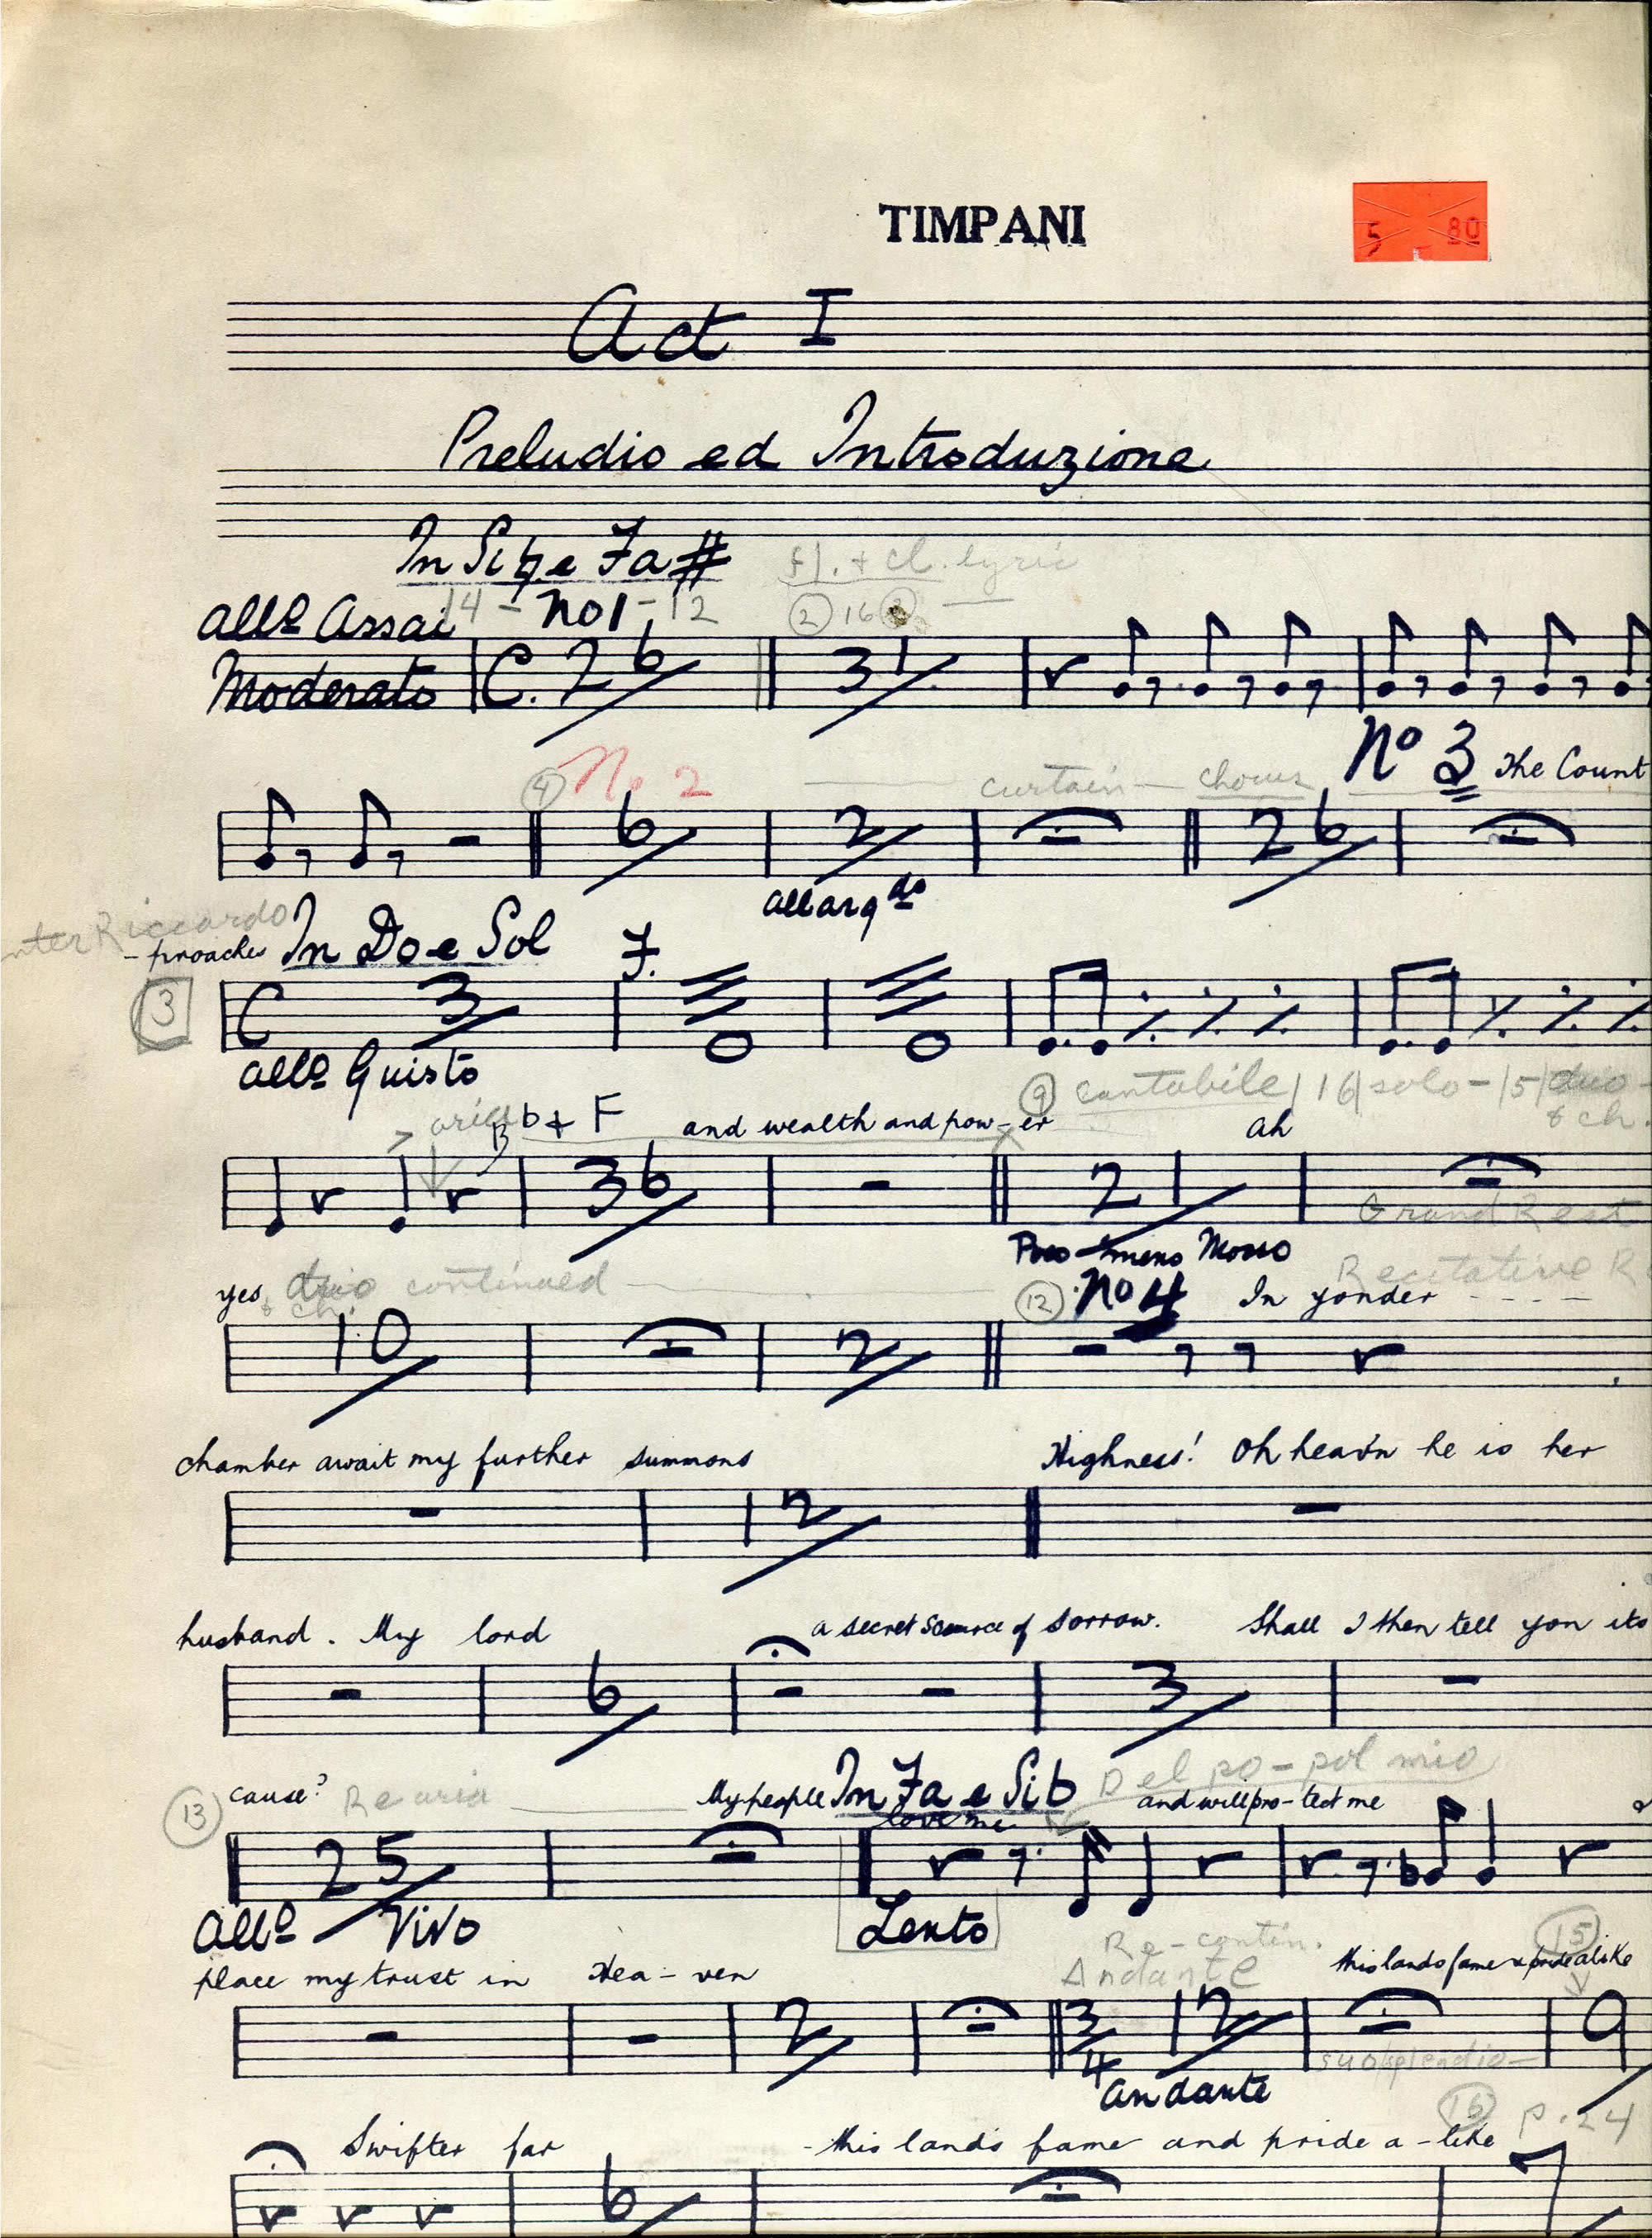 TIMPANI
5 80
Act I
Preludio ed Introduzione
In Si♮ e Fa#
fl. + cl. lyric
Allº Assai 14 - No1 - 12 (2) 16
Moderato C. 26 31
(4) No 2 curtain — chorus Nº 3 The Count
6 2 26
allargdo
Riccardo
- proaches In Do e Sol F.
3 C 3
Allº Guisto
(9) cantabile | 16 | solo - 15 | duo
& ch.
b + F and wealth and pow-er ah
36 21
Grand Rest
Poco meno Mosso
Recitative R
yes duo continued (12) No 4 In yonder - - - -
& ch.
10 2
chamber await my further summons Highness! Oh heav'n he is her
12
husband. My lord a secret source of sorrow. Shall I then tell you its
6 3
Del po-pol mio
(13) cause? Re aria My people In Fa e Si b and will pro-tect me
love me
25
Allº Vivo Lento
Re-contin. (15)
place my trust in Hea-ven Andante this lands fame & pride alike
2 3/4 12 9
Andante
(16) p. 24
Swifter far - this lands fame and pride a-like
6